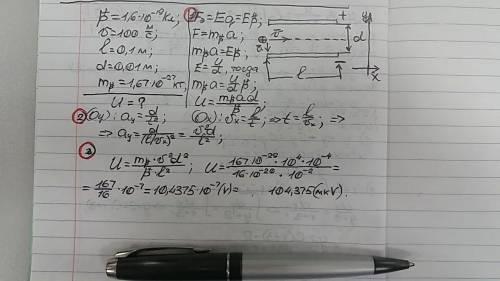 β = 1,6·10⁻¹⁹ Кл;
v = 100 м/с;
l = 0,1 м;
d = 0,01 м;
mp = 1,67·10⁻²⁷ кг,
U = ?
① F₃ = Eq = Eβ;
F = mpa;
mpa = Eβ,
E = U/d, тогда
mpa = U/d β;
U = mpad/β;
+ y
⊕ v d
v
l − x
② (Oy): ay = d/t²; (Ox): vx = l/t; ⇒ t = l/vx, ⇒
⇒ ay = d/(l/vx)² = v²d/l²;
③
U = mp·v²d²/β·l²; U = 167·10⁻²⁹·10⁴·10⁻⁴/16·10⁻²⁰·10⁻² =
= 167/16·10⁻⁷ = 10,4375·10⁻⁷(V) = 104,375 (мкV).